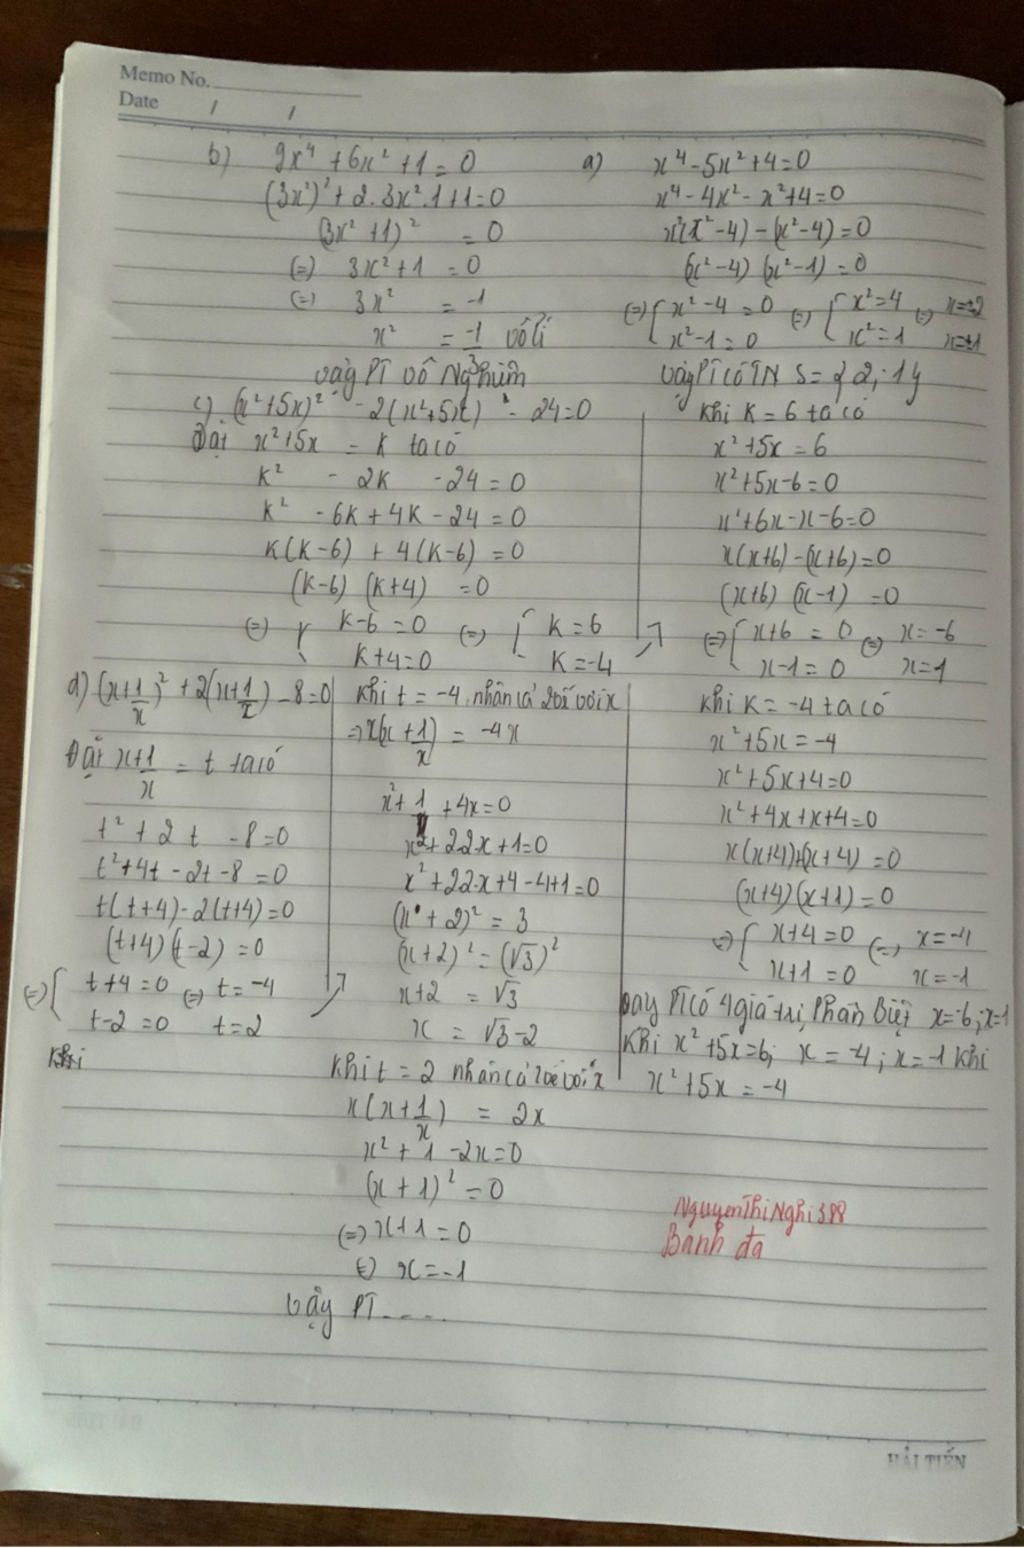 Memo No.
Date / /
b) 9x⁴ + 6x² + 1 = 0
(3x²)² + 2.3x².1 + 1 = 0
(3x² + 1)² = 0
(=) 3x² + 1 = 0
(=) 3x² = -1
x² = -1/3 vô lí
vậy PT vô Nghiệm
a) x⁴ - 5x² + 4 = 0
x⁴ - 4x² - x² + 4 = 0
x²(x² - 4) - (x² - 4) = 0
(x² - 4) (x² - 1) = 0
(=) { x² - 4 = 0 (=) { x² = 4 (=) x = ±2
x² - 1 = 0 x² = 1 x = ±1
vậy PT có TN S = { 2; 1 }
c) (x² + 5x)² - 2(x² + 5x) - 24 = 0
Đặt x² + 5x = K ta có
K² - 2K - 24 = 0
K² - 6K + 4K - 24 = 0
K(K - 6) + 4(K - 6) = 0
(K - 6) (K + 4) = 0
(=) { K - 6 = 0 (=) { K = 6
K + 4 = 0 K = -4
Khi K = 6 ta có
x² + 5x = 6
x² + 5x - 6 = 0
x² + 6x - x - 6 = 0
x(x + 6) - (x + 6) = 0
(x + 6) (x - 1) = 0
(=) { x + 6 = 0 (=) x = -6
x - 1 = 0 x = 1
Khi K = -4 ta có
x² + 5x = -4
x² + 5x + 4 = 0
x² + 4x + x + 4 = 0
x(x + 4) + (x + 4) = 0
(x + 4) (x + 1) = 0
(=) { x + 4 = 0 (=) x = -4
x + 1 = 0 x = -1
Vậy PT có 4 giá trị phân biệt x = -6; x = 1
Khi x² + 5x = 6; x = -4; x = -1 khi
x² + 5x = -4
d) (x + 1/x)² + 2(x + 1/x) - 8 = 0
Đặt x + 1/x = t ta có
t² + 2t - 8 = 0
t² + 4t - 2t - 8 = 0
t(t + 4) - 2(t + 4) = 0
(t + 4) (t - 2) = 0
(=) { t + 4 = 0 (=) t = -4
t - 2 = 0 t = 2
Khi
Khi t = -4 nhân cả 2 vế với x
=> x(x + 1/x) = -4x
x² + 1 + 4x = 0
x² + 2.2x + 1 = 0
x² + 2.2.x + 4 - 4 + 1 = 0
(x + 2)² = 3
(x + 2)² = (√3)²
x + 2 = √3
x = √3 - 2
Khi t = 2 nhân cả 2 vế với x
x(x + 1/x) = 2x
x² + 1 - 2x = 0
(x + 1)² = 0
(=) x + 1 = 0
(=) x = -1
Vậy PT ....
NguyenThiNghi388
Banh đa
HẢI TIẾN